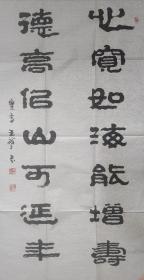 心宽如海能增寿
德高似山可延年